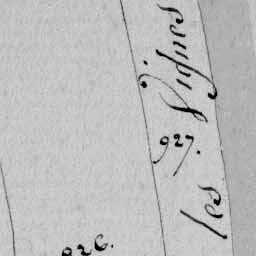 les Vignes
927.
926.